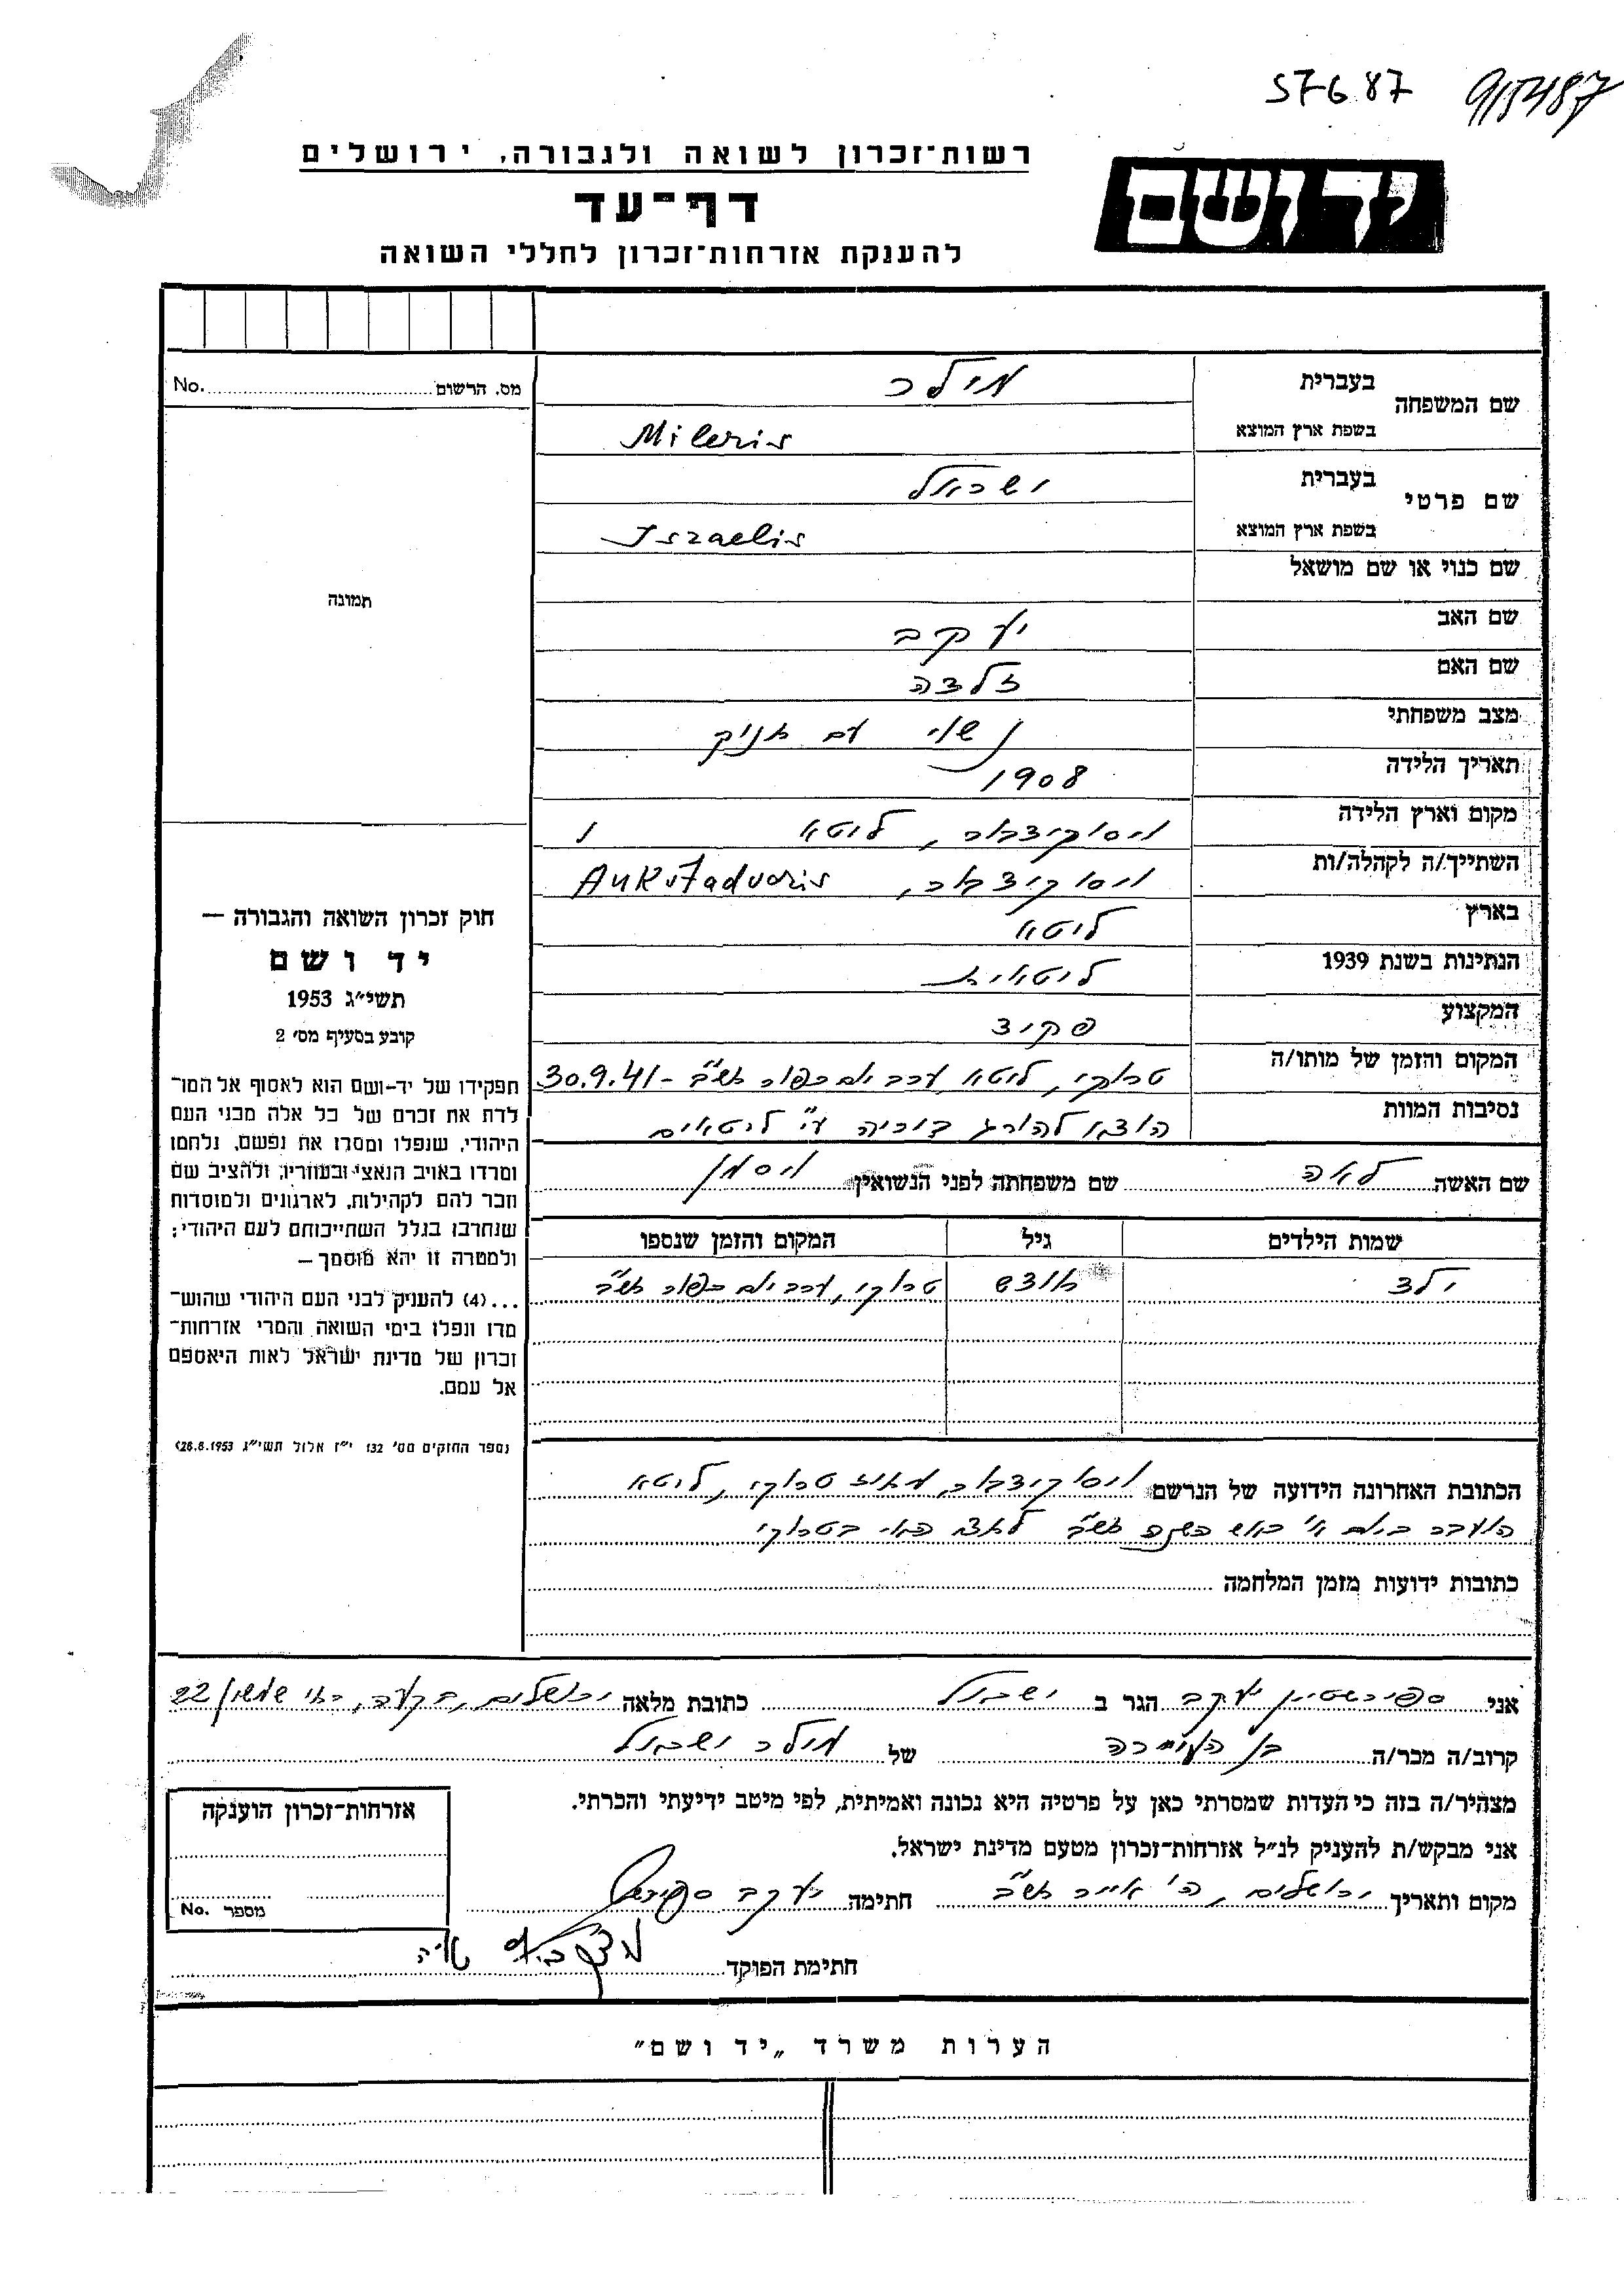 57687 915487
רשות־זכרון לשואה ולגבורה, ירושלים
יד ושם
דף־עד
להענקת אזרחות־זכרון לחללי השואה
מס. הרשום No.
שם המשפחה
בעברית מילר
בשפת ארץ המוצא Mileris
שם פרטי
בעברית ישראל
בשפת ארץ המוצא Israelis
שם כנוי או שם מושאל
תמונה
שם האב יעקב
שם האם זלדה
מצב משפחתי נשוי עם תינוק
תאריך הלידה 1908
מקום וארץ הלידה ויסוקידבור, ליטא
השתייך/ה לקהלה/ות ויסוקידבור, Aukštadvaris
בארץ ליטא
הנתינות בשנת 1939 ליטאית
המקצוע פקיד
המקום והזמן של מותו/ה טרוקי, ליטא ערב יום כפור תש"ב - 30.9.41
נסיבות המוות הוצא להורג ביריה ע"י ליטאים
שם האשה לאה שם משפחתה לפני הנשואין ויסמן
שמות הילדים גיל המקום והזמן שנספו
ילד טרוקי, ערב יום כפור תש"ב
חוק זכרון השואה והגבורה —
יד ושם
תשי״ג 1953
קובע בסעיף מס׳ 2
תפקידו של יד־ושם הוא לאסוף אל המו־
לדת את זכרם של כל אלה מבני העם
היהודי, שנפלו ומסרו את נפשם, נלחמו
ומרדו באויב הנאצי ובעוזריו, ולהציב שם
וזכר להם לקהילות, לארגונים ולמוסדות
שנחרבו בגלל השתייכותם לעם היהודי;
ולמטרה זו יהא מוסמך —
...(4) להעניק לבני העם היהודי שהוש־
מדו ונפלו בימי השואה והמרי אזרחות־
זכרון של מדינת ישראל לאות היאספם
אל עמם.
(ספר החוקים מס׳ 132 י״ז אלול תשי״ג 28.8.1953)
הכתובת האחרונה הידועה של הנרשם ויסוקידבור, מחוז טרוקי, ליטא
הועבר ביום א' ראש השנה תש"ב לאצ האי בטרוקי
כתובות ידועות מזמן המלחמה
אני ספירשטיין יעקב הגר ב ישראל כתובת מלאה ירושלים, בקעה, רח' שמשון 22
קרוב/ה מכר/ה בן העיירה של מילר ישראל
מצהיר/ה בזה כי העדות שמסרתי כאן על פרטיה היא נכונה ואמיתית, לפי מיטב ידיעתי והכרתי.
אני מבקש/ת להעניק לנ״ל אזרחות־זכרון מטעם מדינת ישראל.
מקום ותאריך ירושלים, ה' אייר חתימה יעקב
חתימת הפוקד
אזרחות־זכרון הוענקה
מספר No.
הערות משרד „יד ושם״